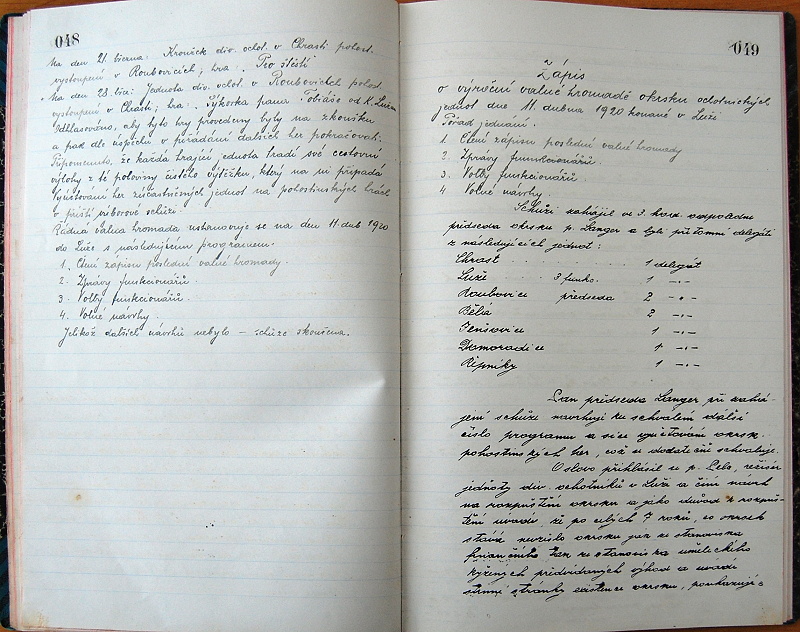 048
Na den 21. břevna: Kroužek div. ochot. v Chrasti pohost.
vystoupení v Roubovicích; hra: "Pro štěstí
Na den 23. V. jednota div. ochot. v Roubovicích pohost
vystoupení v Chrasti; hra: "Výkorka pana Tobiáše od K.
Odhlasováno, aby tyto hry provedeny byly na zkoušku
a pak dle úspěchu v pořádání dalších her pokračovati.
Připomenuto, že každá hrající jednota hradí své cestovní
výlohy z té poloviny čistého výtěžku, který na ni připadá
Vyúčtování her zúčastněných jednot na pohostinských hrách
v příští výborové schůzi.
Řádná valná hromada ustanovuje se na den 11. dub 1920
do Luže s následujícím programem:
1. Čtení zápisu poslední valné hromady.
2. Zprávy funkcionářů.
3. Volby funkcionářů.
4. Volné návrhy.
Jelikož dalších návrhů nebylo – schůze skončena.
049
Zápis
o výroční valné hromadě okrsku ochotnických
jednot dne 11. dubna 1920 konané v Luži
Pořad jednání:
1. Čtení zápisu poslední valné hromady
2. Zprávy funkcionářů.
3. Volby funkcionářů.
4 Volné návrhy.
Schůzi zahájil ve 3 hod. odpoledne
předseda okrsku p. Langer a byli přítomni delegáti
z následujících jednot:
Chrast 1 delegát
Luže 3 funkc. 1 -"-
Roubovice předseda 2 -"-
Bělá 2 -"-
1 -"-
Domoradice 1 -"-
Řepníky 1 -"-
Pan předseda Langer při zahá-
jení schůze navrhuje ku schválení další
číslo programu a sice vyúčtování okrsk.
pohostinských her, což se dodatečně schvaluje.
O slovo přihlásil se p. Lels, režisér
jednoty div. ochotníků v Luži a činí návrh
na rozpuštění okrsku a jako důvod k rozpuš-
tění uvádí, že po celých 7 roků, co okrsek
stává nevzešlo okrsku jak ze stanoviska
finančního tak ze stanoviska uměleckého
kýžených předvídaných výhod a uvádí
stinné stránky existence okrsku, poukazuje